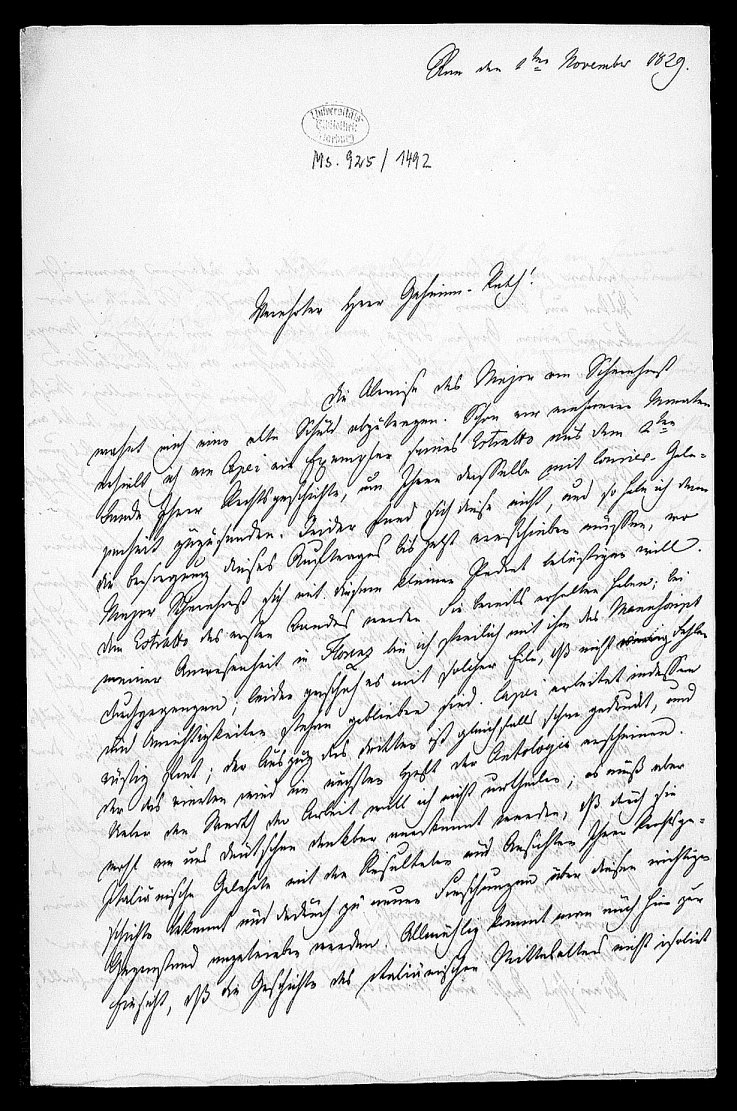 Rom den 1ten November 1829.
Universitäts
Bibliothek
Marburg
Ms. 925/1492
Verehrter Herr Geheim-Rath!
Die Abreise des Major von Scharnhorst
mahnt mich eine alte Schuld abzutragen. Schon vor mehreren Monaten
erhielt ich von Capei ein Exemplar seines Estratto aus dem 2ten
Bande Ihrer Rechtsgeschichte, um Ihnen dasselbe mit Courier-Gele-
genheit zuzusenden. Leider fand sich diese nicht, und so habe ich denn
die Besorgung dieses Auftrages bis jetzt verschieben müssen, wo
Major Scharnhorst sich mit diesem kleinen Packet belästigen will.
Den Estratto des ersten Bandes werden Sie bereits erhalten haben; bei
meiner Anwesenheit in Florenz bin ich freilich mit ihm das Manuscript
durchgegangen; leider geschah es mit solcher Eile, daß nicht wenig Fehler
und Unrichtigkeiten stehen geblieben sind. Capei arbeitet indessen
rüstig fort; der Auszug des dritten ist gleichfalls schon gedruckt, und
der des vierten wird im nächsten Heft der Antologia erscheinen.
Ueber den Werth der Arbeit will ich nicht urtheilen; es muß aber
wohl von uns Deutschen dankbar anerkannt werden, daß durch sie
Italiänische Gelehrte mit den Resultaten und Ansichten Ihrer Rechtsge-
schichte bekannt und dadurch zu neuen Forschungen über diesen wichtigen
Gegenstand angetrieben werden. Allmählig kommt man auch hier zur
Einsicht, daß die Geschichte des italiänischen Mittelalters nicht isolirt